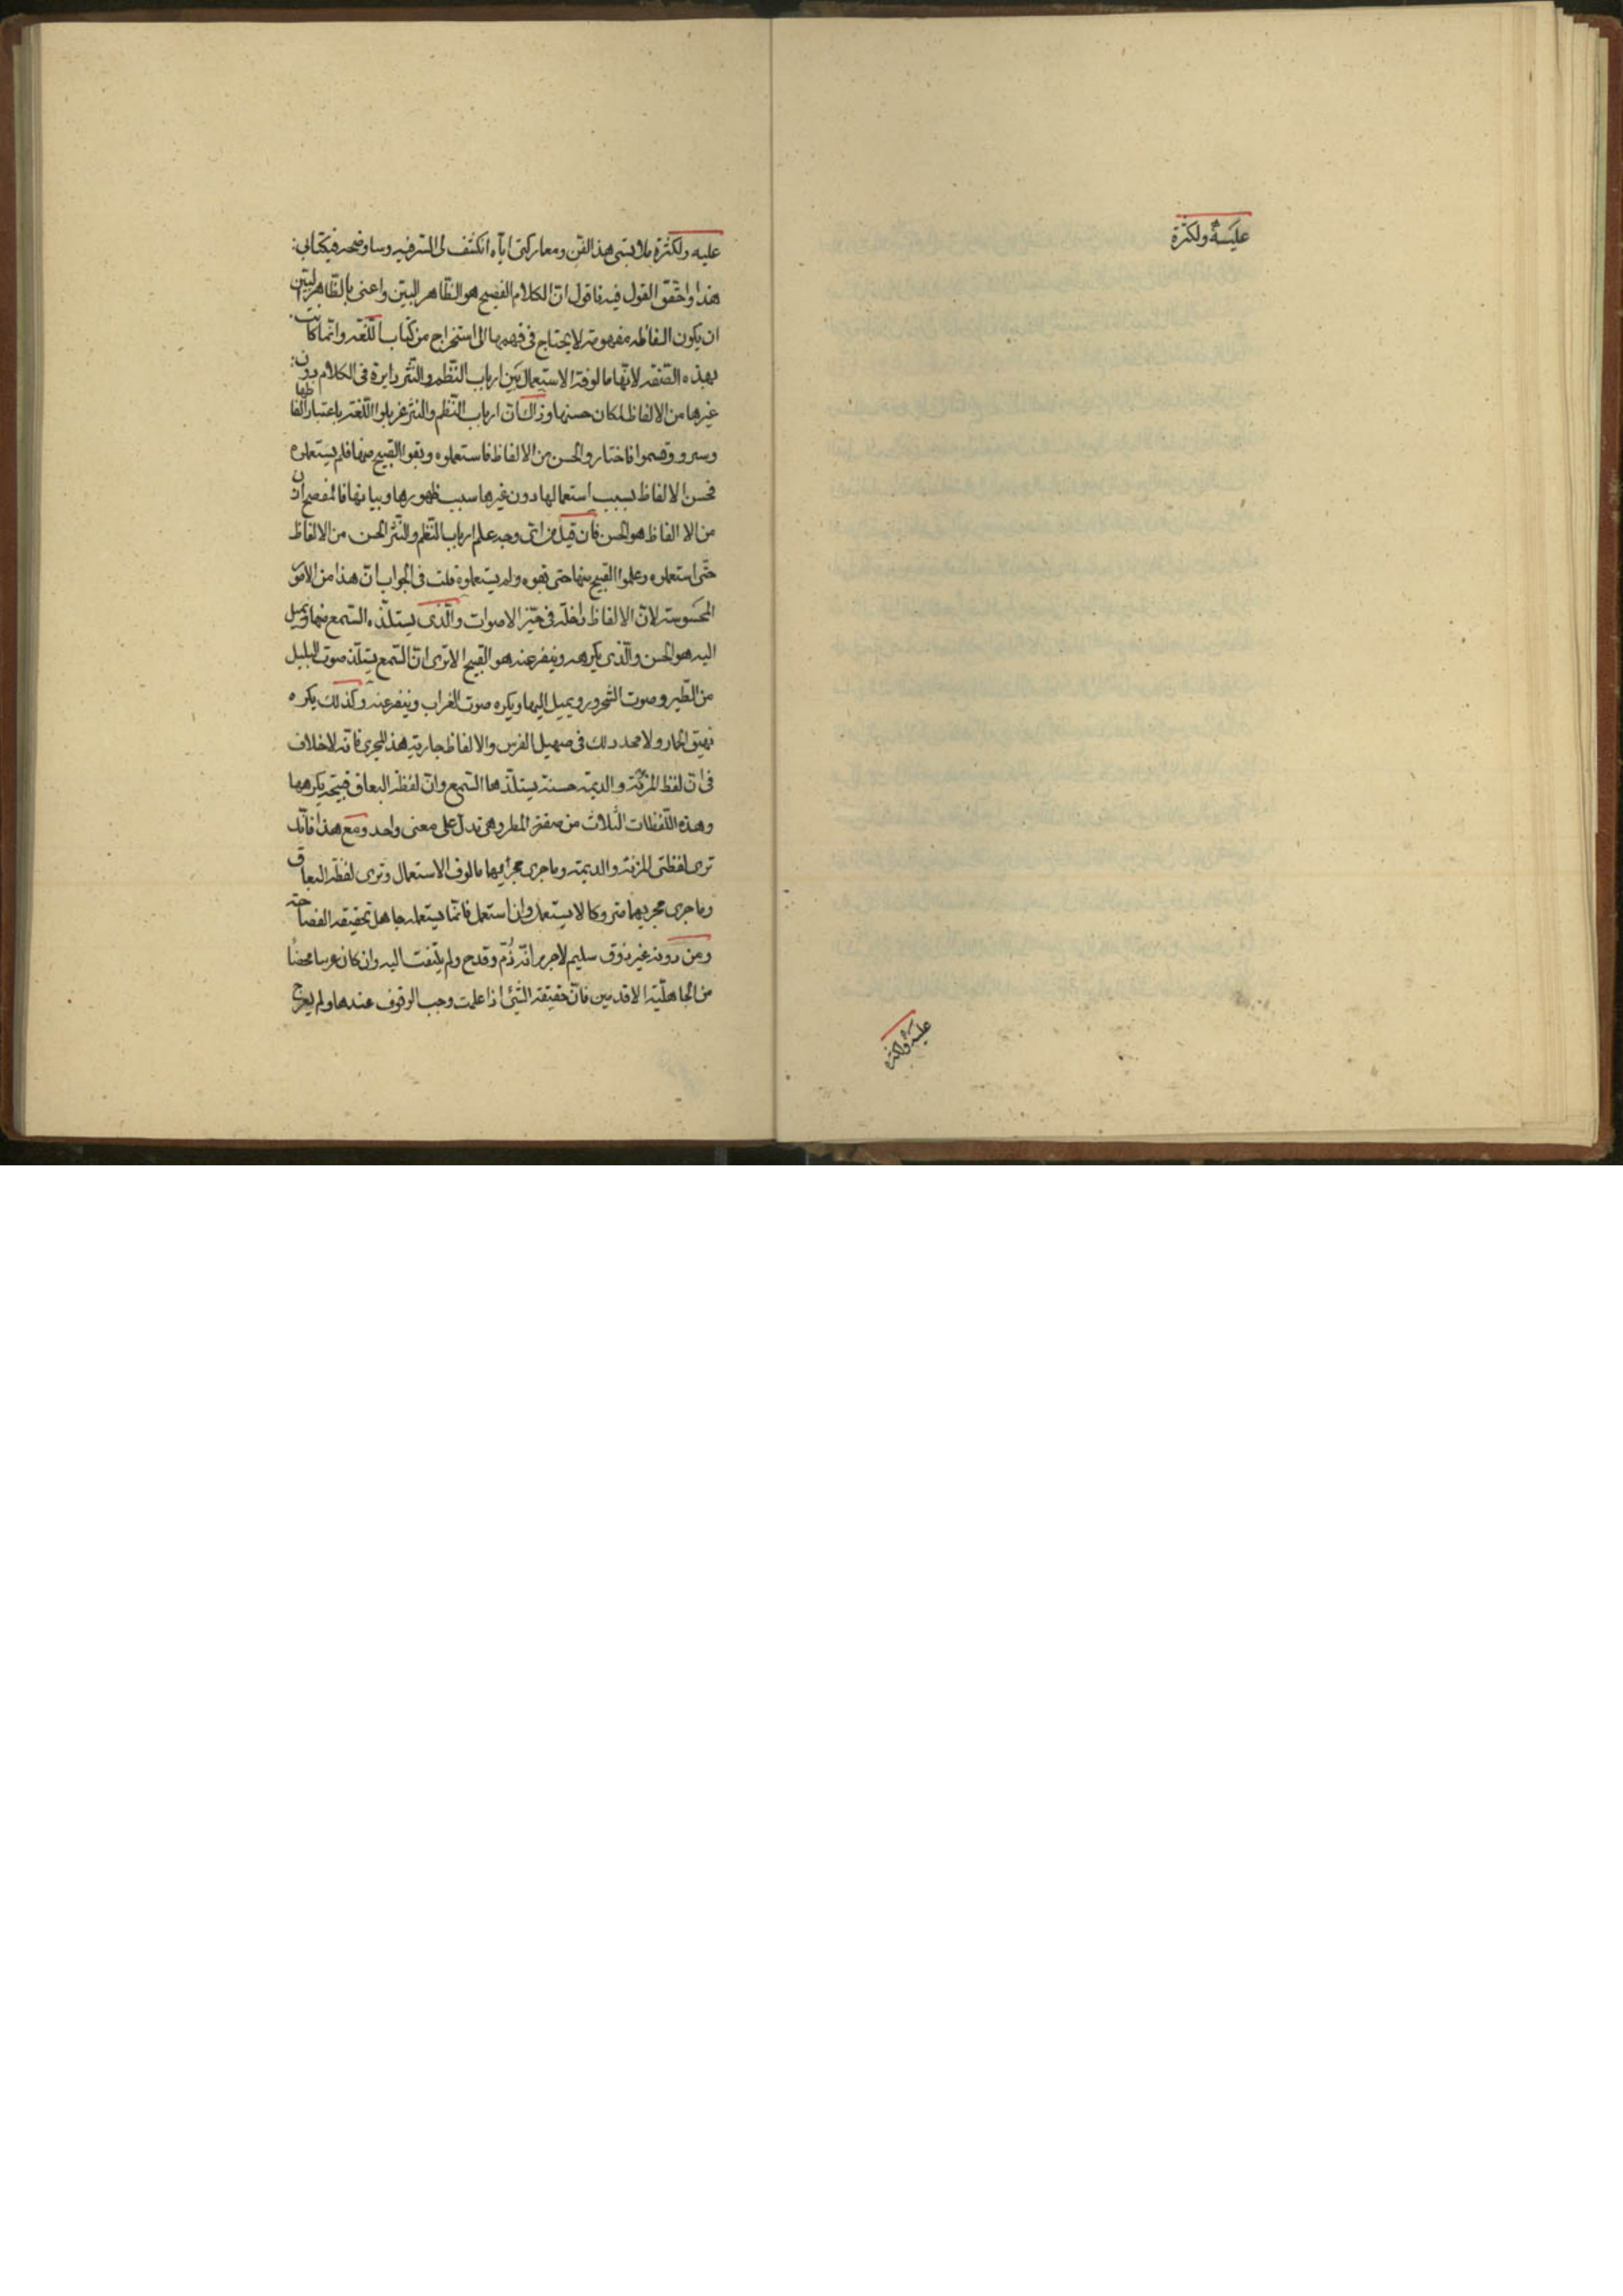 عليه ولكثرة
عليه ولكثرة
عليه ولكثرة ملابستى هذا الفن ومعاركتى اياه انكشف لى السر فيه وساوضحه فى كتابى
هذا واحقق القول فيه فاقول ان الكلام الفصيح هو الظاهر البين واعنى بالظاهر البين
ان يكون الفاظه مفهومة لا يحتاج فى فهمها الى استخراج من كتاب اللغة وانما كانت
بهذه الصفة لانها مالوفة الاستعمال بين ارباب النظم والنثر دايرة فى الكلام دون
غيرها من الالفاظ لمكان حسنها وذاك ان ارباب النظم والنثر غربلوا اللغة باعتبار الفاظها
وسبرو وقسموا فاختاروا الحسن من الالفاظ فاستعملوه ونفوا القبيح منها فلم يستعملوه
فحسن الالفاظ بسبب استعمالها دون غيرها سبب ظهورها وبيانها فالفصيح اذن
من الالفاظ هو الحسن فان قيل من اى وجه علم ارباب النظم والنثر الحسن من الالفاظ
حتى استعملوه وعلموا القبيح منها حتى نفوه ولم يستعملوه قلت فى الجواب ان هذا من الامور
المحسوسة لان الالفاظ داخلة فى حيز الاصوات والذى يستلذه السمع منها ويميل
اليه هو الحسن والذى يكرهه وينفر عنه هو القبيح الا ترى ان السمع يستلذ صوت البلبل
من الطير وصوت الشحرور ويميل اليها ويكره صوت الغراب وينفر عنه وكذلك يكره
نهيق الحمار ولا يجد ذلك فى صهيل الفرس والالفاظ جارية هذا المجرى فانه لا خلاف
فى ان لفظ المزنة والديمة حسنة يستلذها السمع وان لفظة البعاق قبيحة يكرهها
وهذه اللفظات الثلاث من صفة المطر وهى تدل على معنى واحد ومع هذا فانك
ترى لفظتى المزنة والديمة وما جرى مجراهما مالوف الاستعمال وترى لفظة البعاق
وما جرى مجريهما متروكا لا يستعمل وان استعمل فانما يستعمله جاهل بحقيقة الفصاحة
ومن ذوقه غير ذوق سليم لا جرم انه ذم وقدح ولم يلتفت اليه وان كان عربيا محضا
من الجاهلية الاقدمين فان حقيقة الشئ اذا علمت وجب الوقوف عندها ولم يعرج